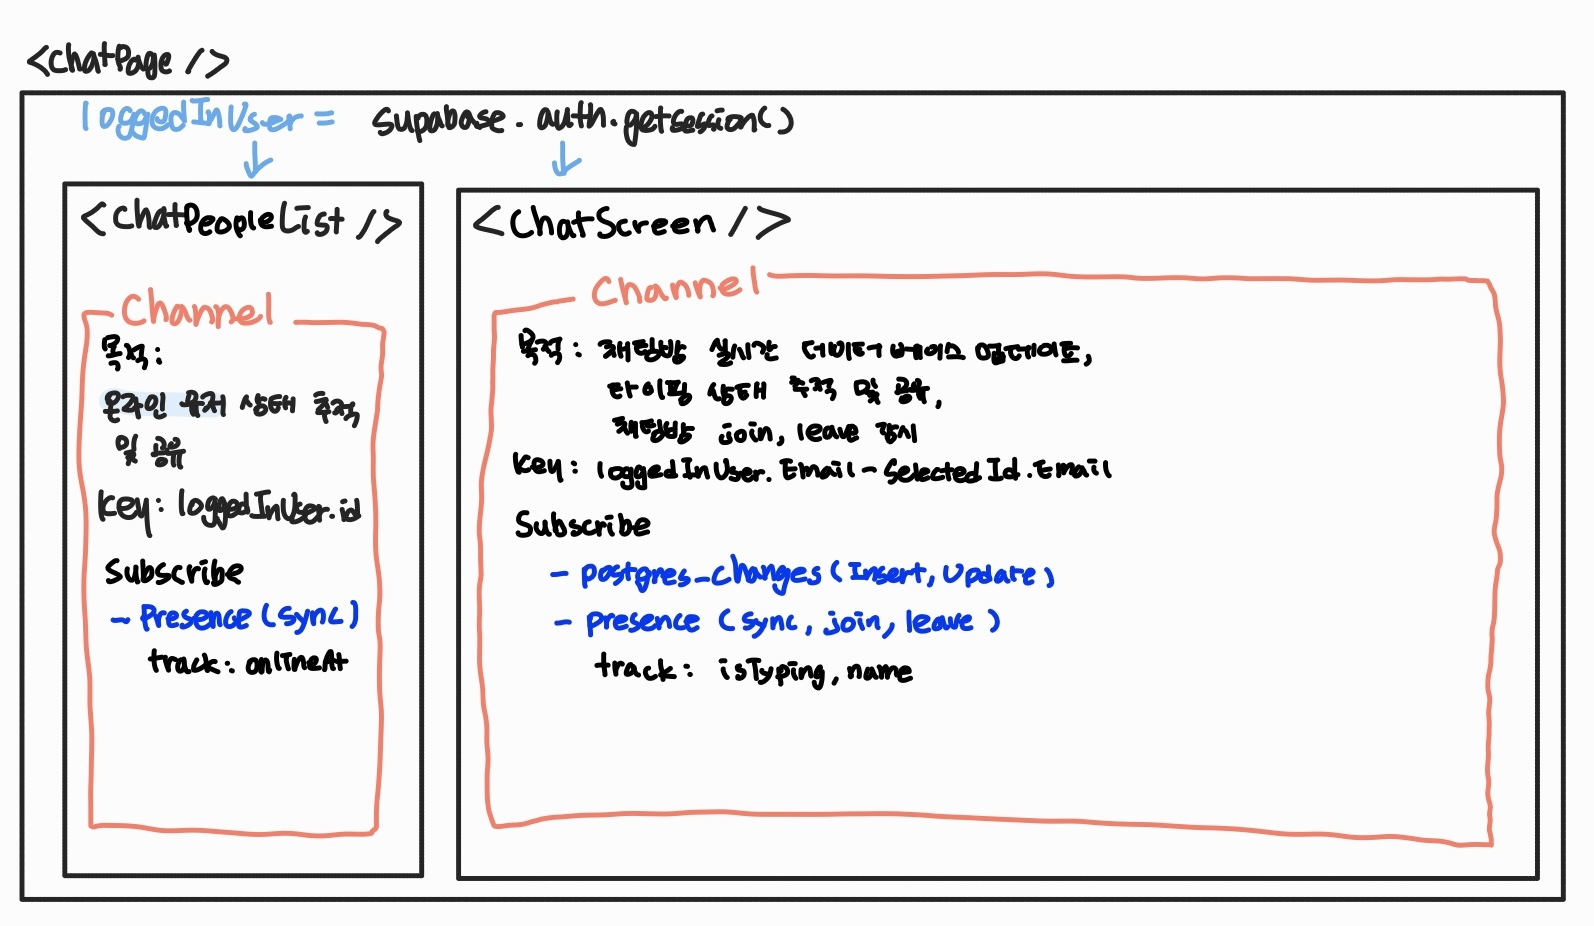 <ChatPage />
loggedInUser = supabase.auth.getSession()
<ChatPeopleList />
Channel
목적:
온라인 유저 상태 추적
및 공유
key: loggedInUser.id
Subscribe
- Presence (sync)
track: onlineAt
<ChatScreen />
Channel
목적: 채팅방 실시간 데이터베이스 업데이트,
타이핑 상태 추적 및 공유,
채팅방 join, leave 감시
key: loggedInUser.Email - SelectedId.Email
Subscribe
- postgres_changes (Insert, Update)
- presence (sync, join, leave)
track: isTyping, name